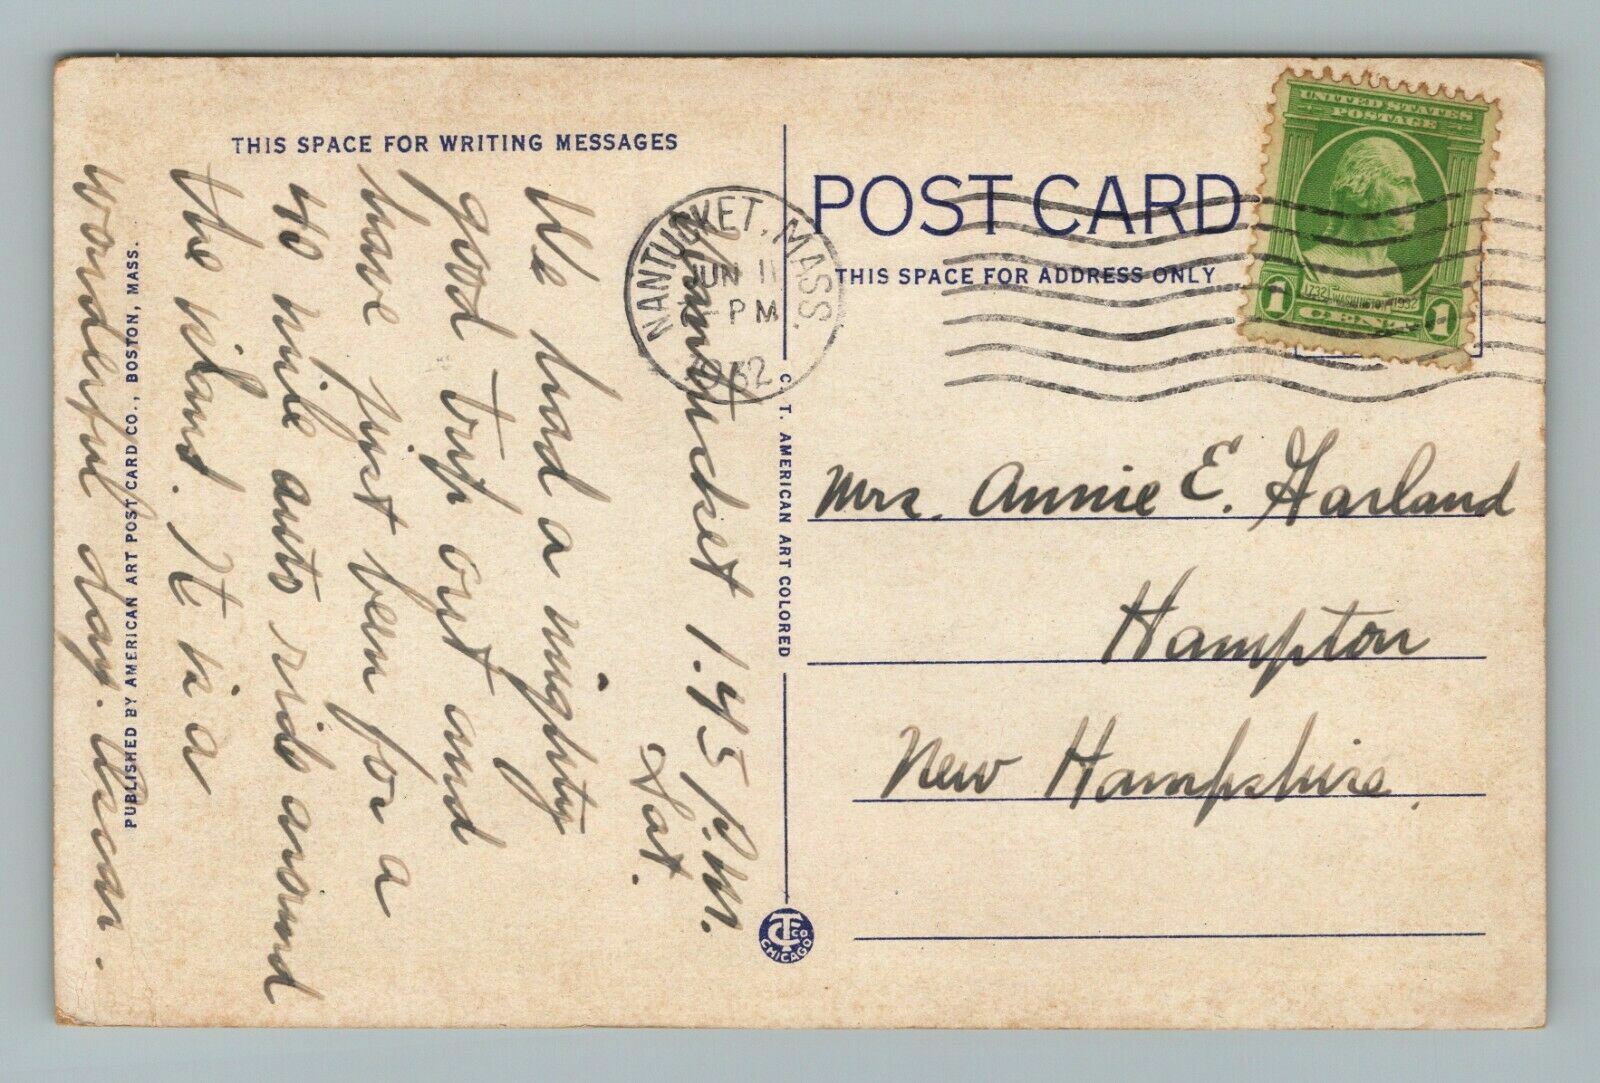 THIS SPACE FOR WRITING MESSAGES
Nantucket 1.45 P.M.
Sat.
We had a mighty
good trip out and
have just been for a
40 mile auto ride around
the island. It is a
wonderful day. Oscar.
PUBLISHED BY AMERICAN ART POST CARD CO., BOSTON, MASS.
NANTUCKET, MASS.
JUN 11
PM
1932
C. T. AMERICAN ART COLORED
C T CO
CHICAGO
POST CARD
THIS SPACE FOR ADDRESS ONLY
UNITED STATES
POSTAGE
1732 WASHINGTON 1932
1 CENT 1
Mrs. Annie E. Garland
Hampton
New Hampshire.